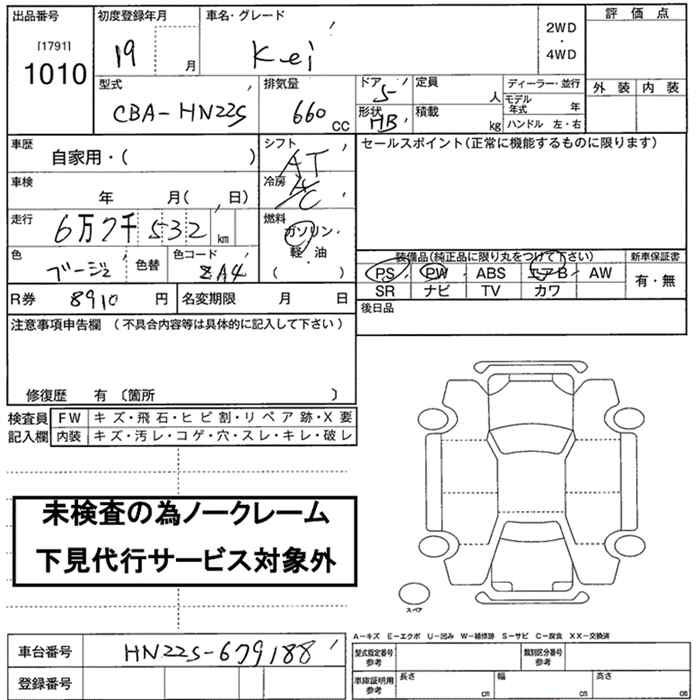 出品番号 初度登録年月 車名・グレード 評価点
[1791]
1010
19 月
Kei
2WD
・
4WD
外装 内装
型式 排気量 ドア 定員 ディーラー・並行
CBA-HN22S 660 CC 5 人
形状 積載 モデル年式 年
HB kg ハンドル 左・右
車歴 シフト セールスポイント(正常に機能するものに限ります)
自家用・( ) AT
車検 冷房
年 月( 日) A/C
走行 燃料
6万7千532 km ガソリン・
軽・油
( )
色 色替 色コード
ベージュ Z A4
装備品(純正品に限り丸をつけて下さい) 新車保証書
PS PW ABS エアB AW 有・無
SR ナビ TV カワ
R券 8910 円 名変期限 月 日
後日品
注意事項申告欄 (不具合内容等は具体的に記入して下さい)
修復歴 有 〔箇所 〕
検査員 FW キズ・飛石・ヒビ割・リペア跡・X要
記入欄 内装 キズ・汚レ・コゲ・穴・スレ・キレ・破レ
未検査の為ノークレーム
下見代行サービス対象外
スペア
A-キズ E-エクボ U-凹み W-補修跡 S-サビ C-腐食 XX-交換済
車台番号 HN22S-679188
型式指定番号 参考 類別区分番号 参考
登録番号
車庫証明用 参考 長さ cm 幅 cm 高さ cm